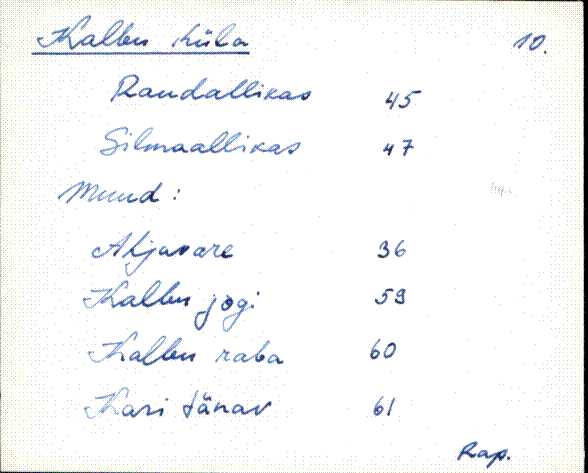 Kalbu küla 10.
Raudallikas 45
Silmaallikas 47
Muud:
Ahjuvare 36
Kalbu jõgi 59
Kalbu raba 60
Kari tänav 61
Rap.